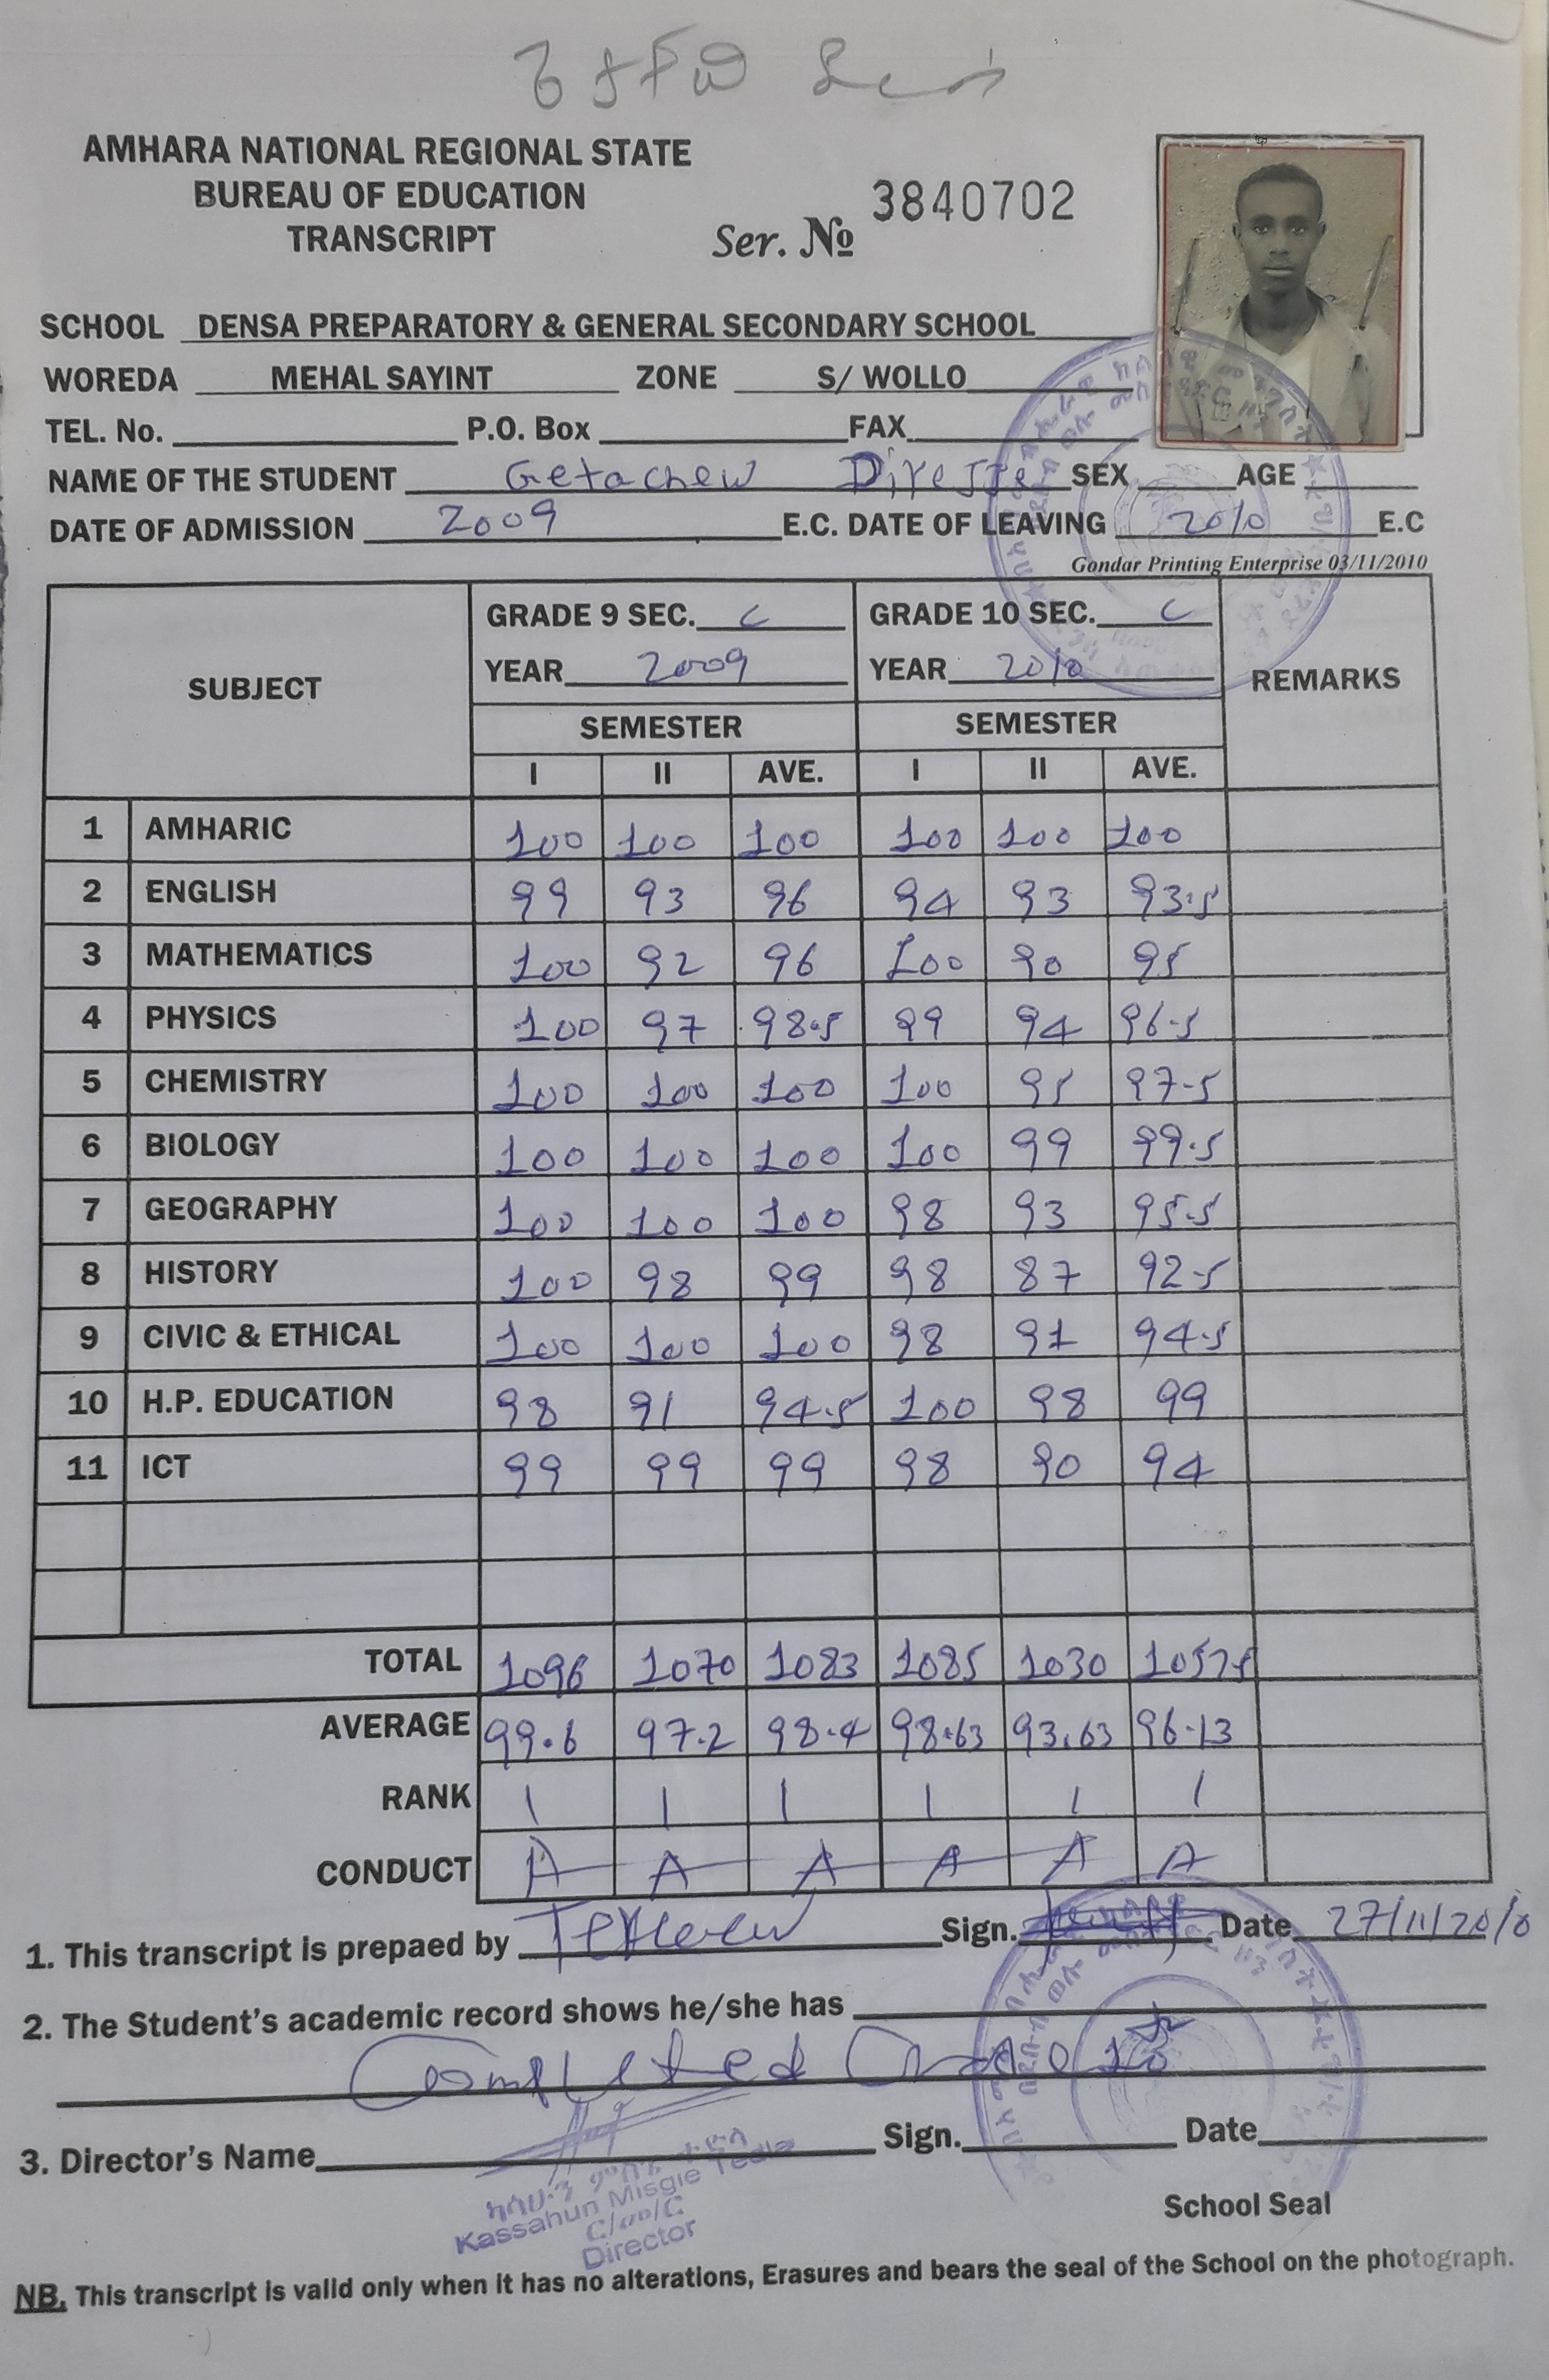 AMHARA NATIONAL REGIONAL STATE
BUREAU OF EDUCATION
TRANSCRIPT
Ser. № 3840702
SCHOOL DENSA PREPARATORY & GENERAL SECONDARY SCHOOL
WOREDA MEHAL SAYINT ZONE S/ WOLLO
TEL. No. P.O. Box FAX
NAME OF THE STUDENT Getachew SEX AGE
DATE OF ADMISSION 2009 E.C. DATE OF LEAVING 2010 E.C
Gondar Printing Enterprise 03/11/2010
SUBJECT GRADE 9 SEC. C GRADE 10 SEC. C REMARKS
YEAR 2009 YEAR 2010
SEMESTER SEMESTER
I II AVE. I II AVE.
1 AMHARIC 100 100 100 100 100 100
2 ENGLISH 99 93 96 94 93 93.5
3 MATHEMATICS 100 92 96 100 90 95
4 PHYSICS 100 97 98.5 99 94 96.5
5 CHEMISTRY 100 100 100 100 95 97.5
6 BIOLOGY 100 100 100 100 99 99.5
7 GEOGRAPHY 100 100 100 98 93 95.5
8 HISTORY 100 98 99 98 87 92.5
9 CIVIC & ETHICAL 100 100 100 98 91 94.5
10 H.P. EDUCATION 98 91 94.5 100 98 99
11 ICT 99 99 99 98 90 94
TOTAL 1096 1070 1083 1085 1030 1057.5
AVERAGE 99.6 97.2 98.4 98.63 93.63 96.13
RANK 1 1 1 1 1 1
CONDUCT A A A A A A
1. This transcript is prepaed by Sign. Date 27/11/2010
2. The Student's academic record shows he/she has
Completed Grade 10
3. Director's Name Sign. Date
Kassahun Misgie Tedla
ር/መ/ር
Director
School Seal
NB. This transcript is valid only when it has no alterations, Erasures and bears the seal of the School on the photograph.